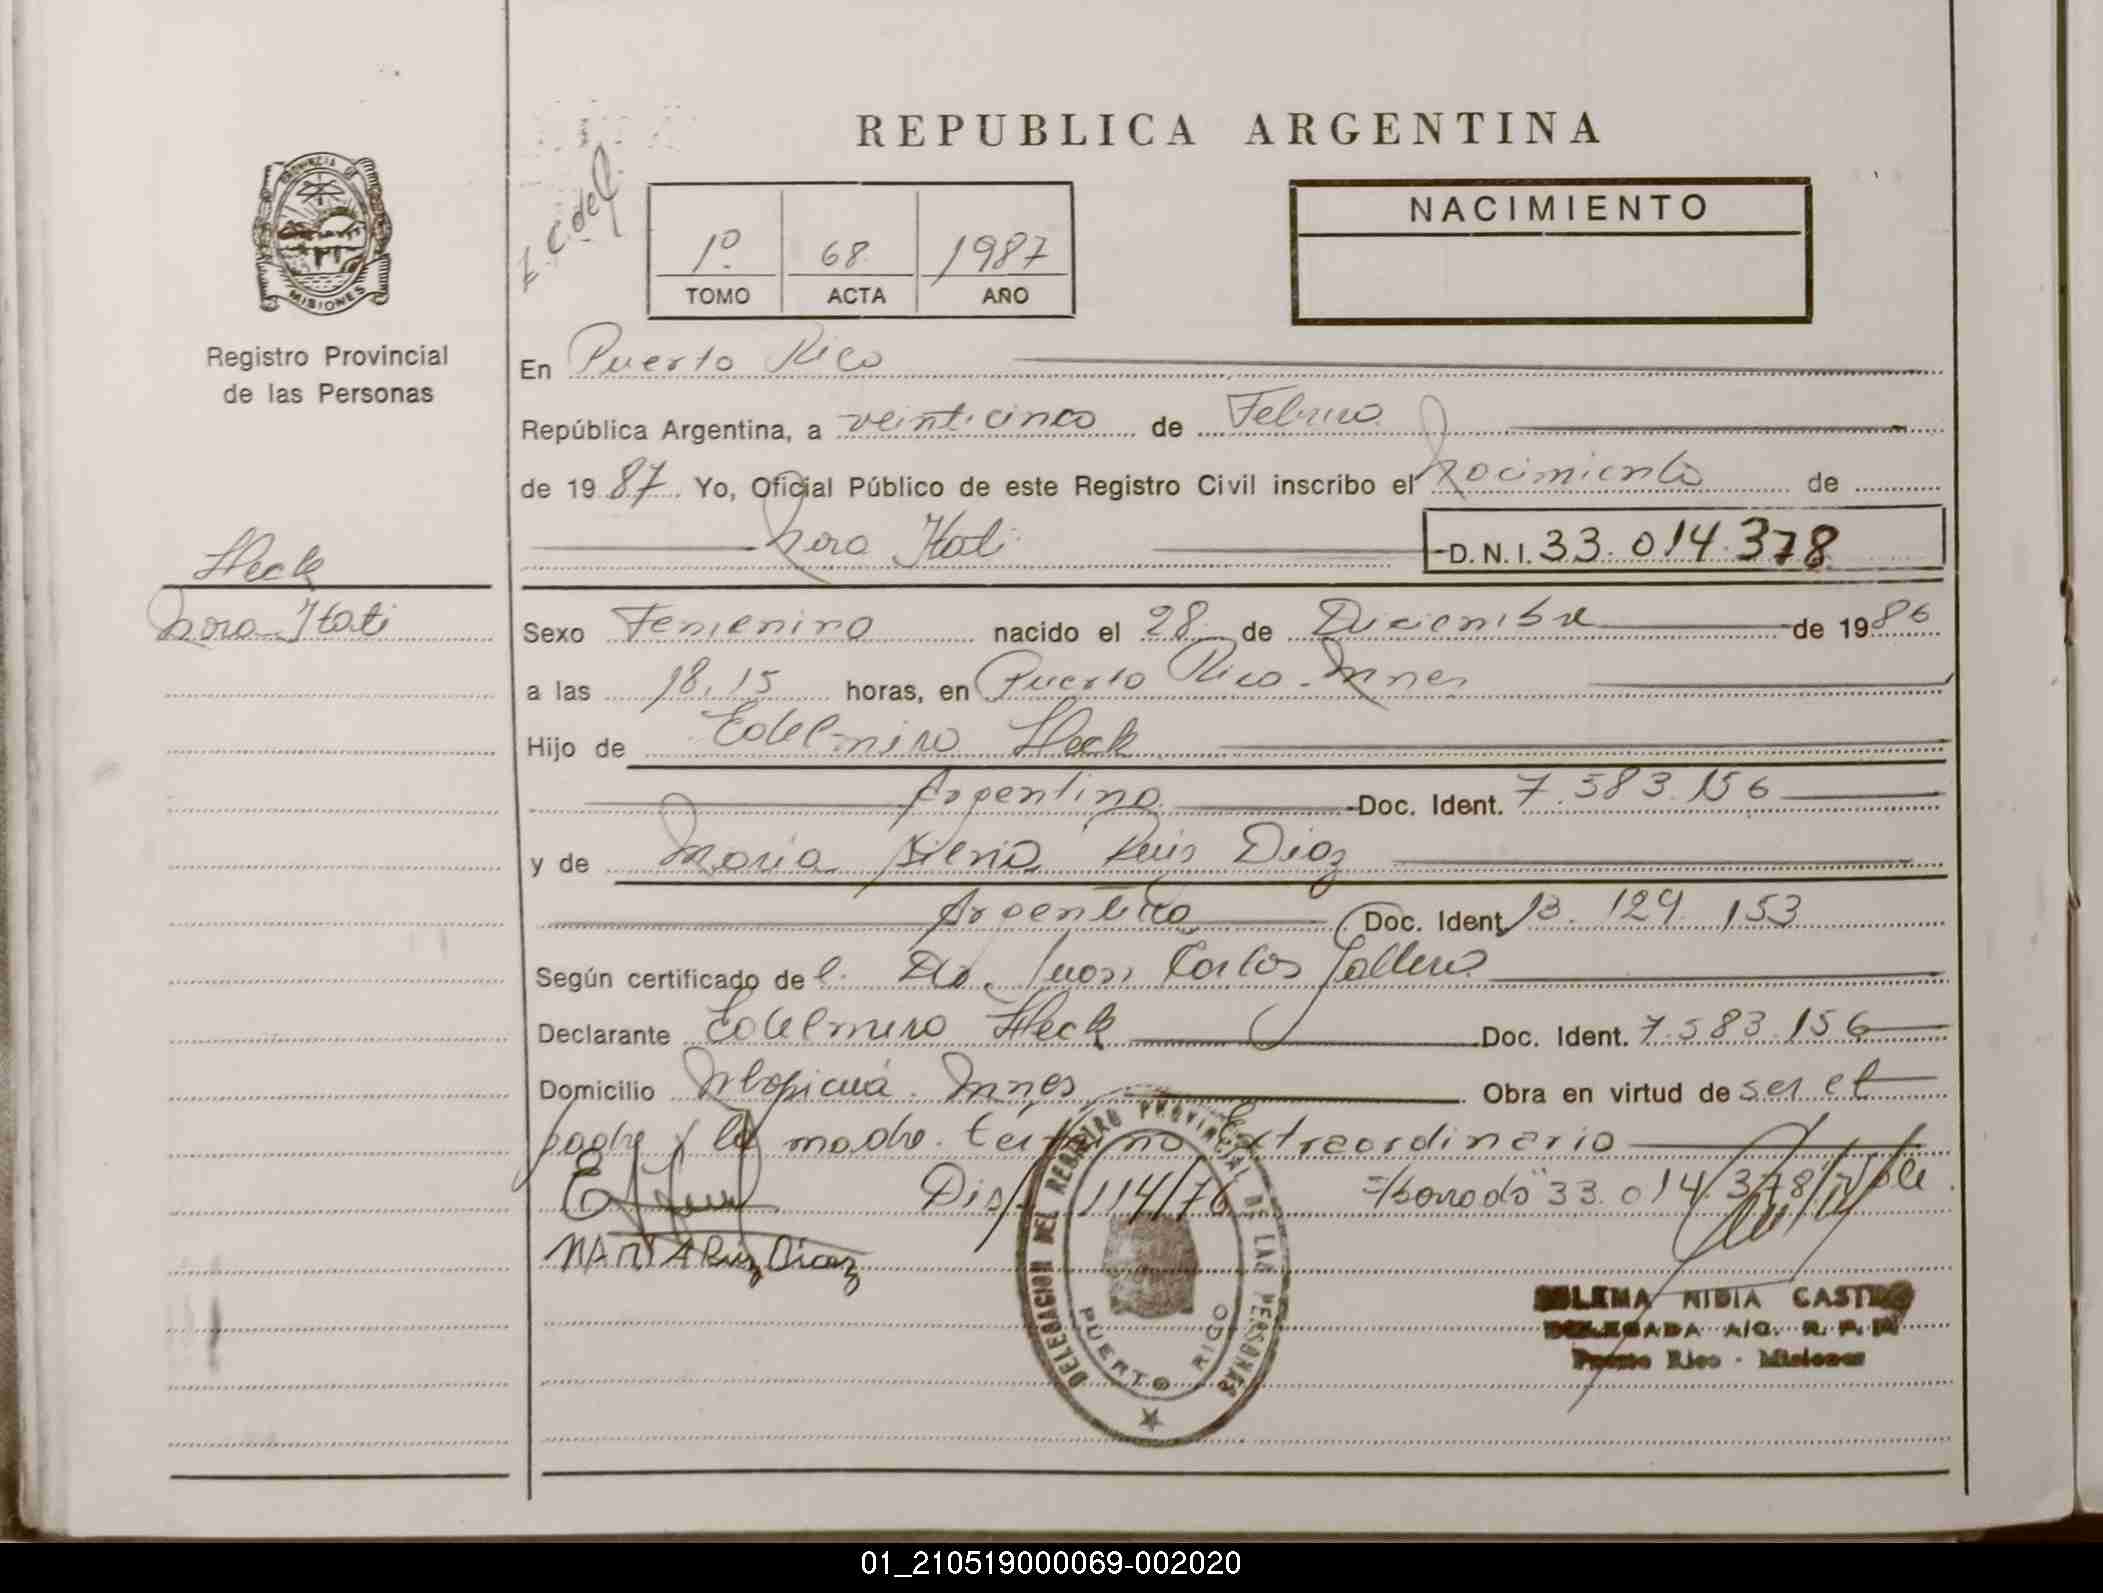 REPUBLICA ARGENTINA
PROVINCIA DE
MISIONES
Registro Provincial
de las Personas
1º 68 1987
TOMO ACTA AÑO
NACIMIENTO
En Puerto Rico
República Argentina, a veinticinco de Febrero
de 1987. Yo, Oficial Público de este Registro Civil inscribo el Nacimiento de
Nora Itati D.N.I. 33.014.378
Heck
Nora Itati
Sexo Femenino nacido el 28 de Diciembre de 1986
a las 18,15 horas, en Puerto Rico. Mnes
Hijo de Edelmiro Heck
Argentino Doc. Ident. 7.583.156
y de Maria Ruiz Diaz
Argentina Doc. Ident. 13.129.153
Según certificado del Dr. Juan Carlos
Declarante Edelmiro Heck Doc. Ident. 7.583.156
Domicilio Mnes Obra en virtud de ser el
padre y la madre. término Extraordinario
Disp 114/76 "33.014.378" Vale
MARIA Ruiz Diaz
DELEGACION DEL REGISTRO PROVINCIAL DE LAS PERSONAS
PUERTO RICO
NIDIA CASTRO
DELEGADA A/C. R. P. P.
Puerto Rico - Misiones
01_210519000069-002020